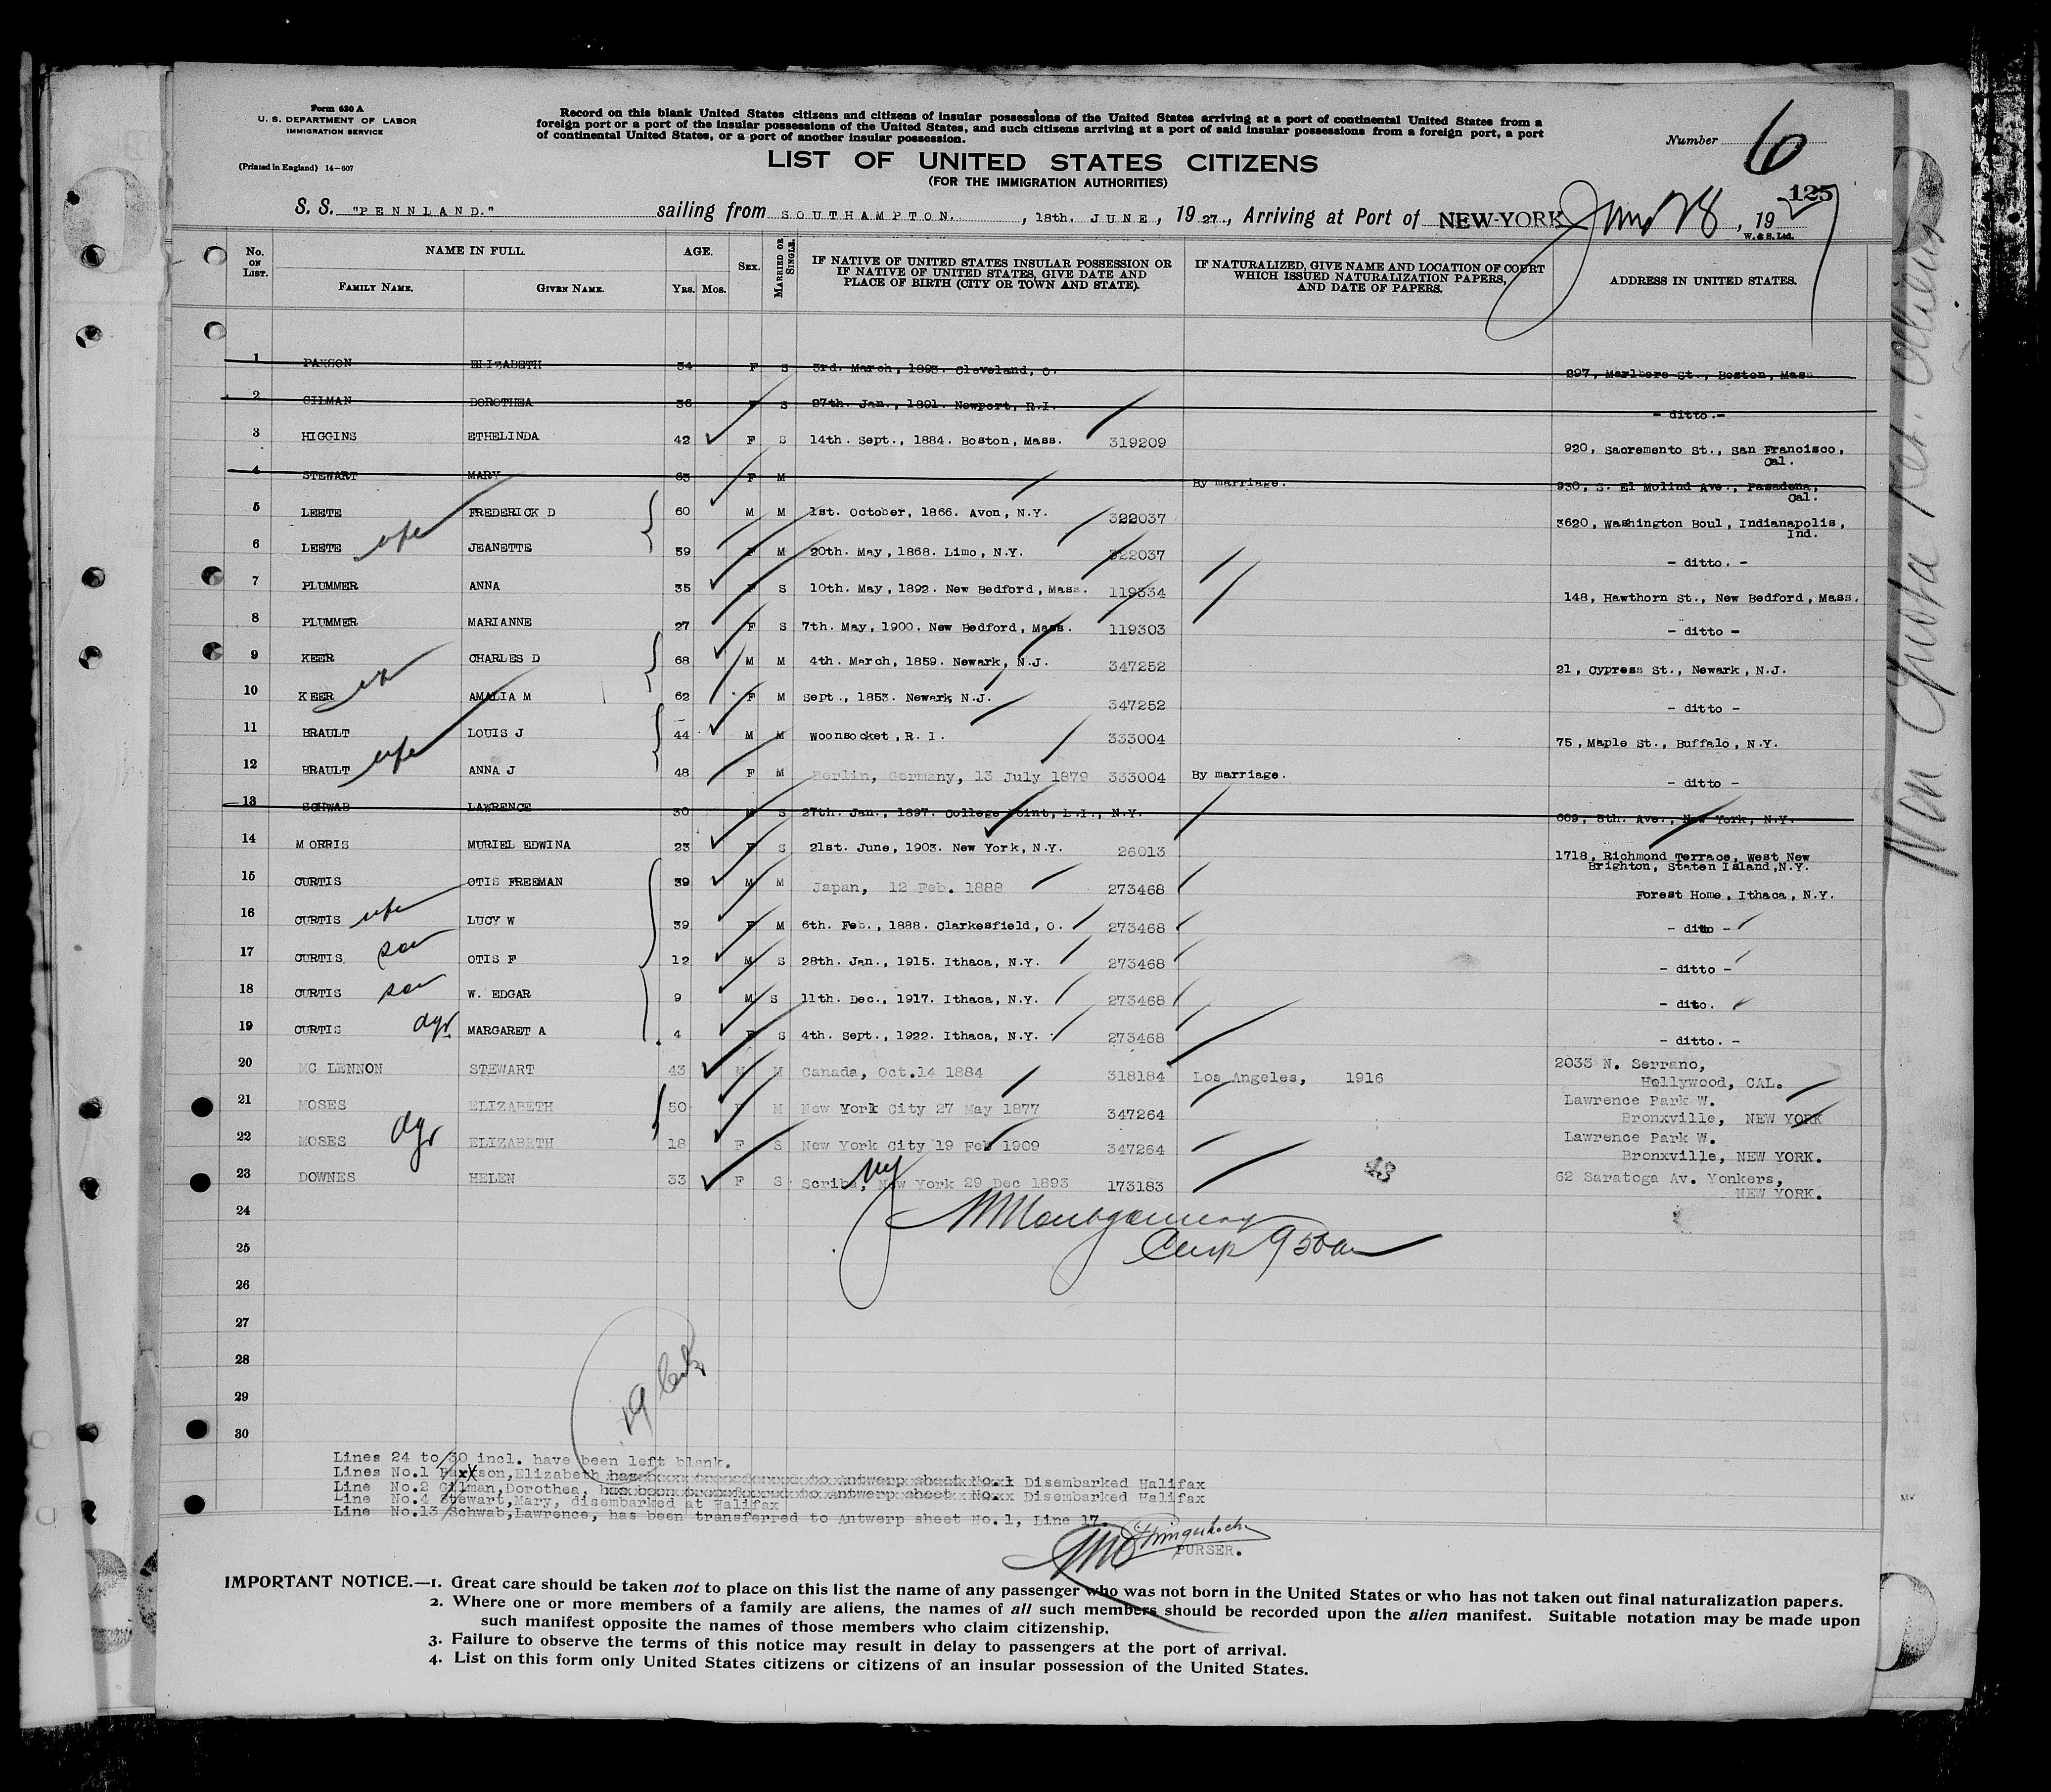 Form 630 A
U. S. DEPARTMENT OF LABOR
IMMIGRATION SERVICE
(Printed in England) 14-607
Record on this blank United States citizens and citizens of insular possessions of the United States arriving at a port of continental United States from a
foreign port or a port of the insular possessions of the United States, and such citizens arriving at a port of said insular possessions from a foreign port, a port
of continental United States, or a port of another insular possession.
Number 6
LIST OF UNITED STATES CITIZENS
(FOR THE IMMIGRATION AUTHORITIES)
125
S. S. "PENNLAND." sailing from SOUTHAMPTON. , 18th. JUNE , 19 27., Arriving at Port of NEW-YORK June 28, 19 27
W. & S. Ltd.
No. ON LIST. NAME IN FULL. AGE. SEX. MARRIED OR SINGLE. IF NATIVE OF UNITED STATES INSULAR POSSESSION OR IF NATIVE OF UNITED STATES, GIVE DATE AND PLACE OF BIRTH (CITY OR TOWN AND STATE). IF NATURALIZED, GIVE NAME AND LOCATION OF COURT WHICH ISSUED NATURALIZATION PAPERS, AND DATE OF PAPERS. ADDRESS IN UNITED STATES.
FAMILY NAME. GIVEN NAME. YRS. MOS.
1 PAXSON ELIZABETH 34 F S 3rd. March, 1893. Cleveland, O. 297, Marlboro St., Boston, Mass.
2 GILMAN DOROTHEA 36 F S 27th. Jan., 1891. Newport, R.I. - ditto.-
3 HIGGINS ETHELINDA 42 F S 14th. Sept., 1884. Boston, Mass. 319209 920, Sacremento St., San Francisco, Cal.
4 STEWART MARY 65 F M By marriage. 930, S. El Molind Ave., Pasadena, Cal.
5 LEETE FREDERICK D 60 M M 1st. October, 1866. Avon, N.Y. 322037 3620, Washington Boul, Indianapolis, Ind.
6 LEETE wife JEANETTE 59 F M 20th. May, 1868. Limo, N.Y. 322037 - ditto. -
7 PLUMMER ANNA 35 F S 10th. May, 1892. New Bedford, Mass. 119334 148, Hawthorn St., New Bedford, Mass.
8 PLUMMER MARIANNE 27 F S 7th. May, 1900. New Bedford, Mass. 119303 - ditto -
9 KEER CHARLES D 68 M M 4th. March, 1859. Newark, N.J. 347252 21, Cypress St., Newark, N.J.
10 KEER AMALIA M 62 F M Sept., 1853. Newark, N.J. 347252 - ditto -
11 BRAULT LOUIS J 44 M M Woonsocket, R.I. 333004 75, Maple St., Buffalo, N.Y.
12 BRAULT wife ANNA J 48 F M Berlin, Germany, 13 July 1879 333004 By marriage. - ditto -
13 SCHWAB LAWRENCE 30 M S 27th. Jan., 1897. College Point, L.I., N.Y. 669, 5th. Ave., New York, N.Y.
14 MORRIS MURIEL EDWINA 23 F S 21st. June, 1903. New York, N.Y. 26013 1718, Richmond Terrace, West New Brighton, Staten Island, N.Y.
15 CURTIS OTIS FREEMAN 39 M M Japan, 12 Feb. 1888 273468 Forest Home, Ithaca, N.Y.
16 CURTIS wife LUCY W 39 F M 6th. Feb., 1888. Clarkesfield, O. 273468 - ditto -
17 CURTIS son OTIS F 12 M S 28th. Jan., 1915. Ithaca, N.Y. 273468 - ditto -
18 CURTIS son W. EDGAR 9 M S 11th. Dec., 1917. Ithaca, N.Y. 273468 - dito.
19 CURTIS dgr MARGARET A 4 F S 4th. Sept., 1922. Ithaca, N.Y. 273468 - ditto. -
20 MC LENNON STEWART 43 M M Canada, Oct.14 1884 318184 Los Angeles, 1916 2033 N. Serrano, Hollywood, CAL.
21 MOSES ELIZABETH 50 F M New York City 27 May 1877 347264 Lawrence Park W. Bronxville, NEW YORK
22 MOSES dgr ELIZABETH 18 F S New York City 19 Feb 1909 347264 Lawrence Park W. Bronxville, NEW YORK.
23 DOWNES HELEN 33 F S Scriba, New York 29 Dec 1893 173183 62 Saratoga Av. Yonkers, NEW YORK.
24
25
26
27
28
29
30
Lines 24 to 30 incl. have been left blank.
Lines No.1 Paxson,Elizabeth has been transferred to Antwerp sheet No.1 Disembarked Halifax
Line No.2 Gilman,Dorothea, has been transferred to Antwerp sheet No. Disembarked Halifax
Line No.4 Stewart,Mary, disembarked at Halifax
Line No.13 Schwab,Lawrence, has been transferred to Antwerp sheet No.1, Line 17.
PURSER.
IMPORTANT NOTICE.—1. Great care should be taken not to place on this list the name of any passenger who was not born in the United States or who has not taken out final naturalization papers.
2. Where one or more members of a family are aliens, the names of all such members should be recorded upon the alien manifest. Suitable notation may be made upon
such manifest opposite the names of those members who claim citizenship.
3. Failure to observe the terms of this notice may result in delay to passengers at the port of arrival.
4. List on this form only United States citizens or citizens of an insular possession of the United States.